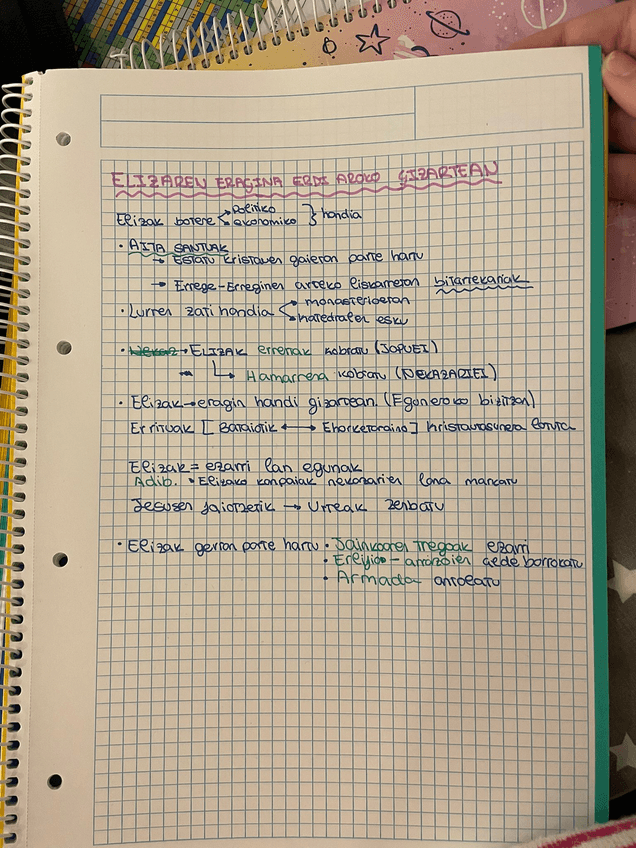 ELIZAREN ERAGINA ERDI AROKO GIZARTEAN
Elizak botere politiko
ekonomiko } handia
· AITA SANTUAK
→ Estatu kristauen gaieran parte hartu
→ Errege-Erreginen arteko liskarretan bitartekariak
· Lurren zati handia monasterioetan
katedralen esku
· → ELIZAK errentak kobratu (JOPUEI)
↳ Hamarrena kobratu (NEKAZARIEI)
· Elizak → eragin handi gizartean. (Eguneroko bizitzan)
Errituak [Bataiotik ↔ Ehorketaraino] kristautasunera lotuta
Elizak = ezarri lan egunak
Adib. · Elizako kanpaiak nekazarien lana markatu
Jesusen jaiotzetik → Urteak zenbatu
· Elizak gerran parte hartu · Jainkoaren Tregoak ezarri
· Erlijio - arrazoien alde borrokatu
· Armada antolatu